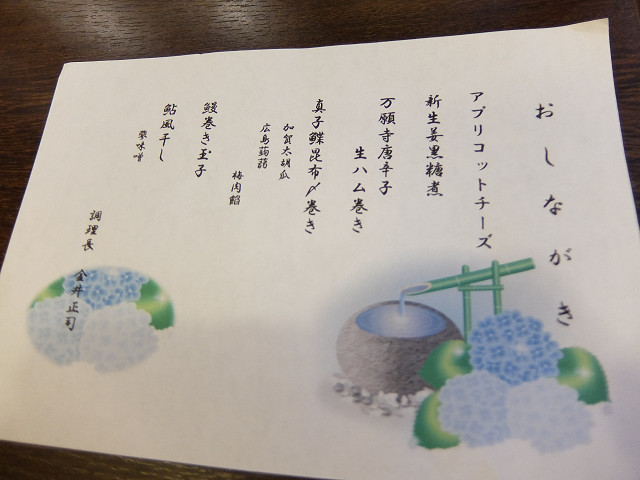 おしながき
アプリコットチーズ
新生姜黒糖煮
万願寺唐辛子
生ハム巻き
真子鰈昆布〆巻き
加賀太胡瓜
広島蒟蒻
梅肉餡
鰻巻き玉子
鮎風干し
蓼味噌
調理長 金井正司